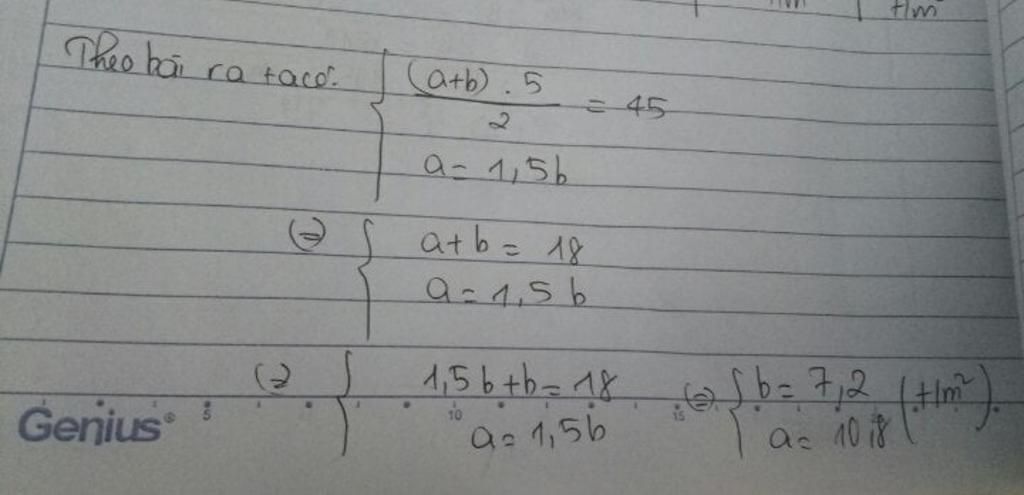 t/m t/m
Theo bài ra ta có: { (a+b) . 5 / 2 = 45
a = 1,5b
(=) { a+b = 18
a = 1,5 b
(=) { 1,5b+b = 18 (=) { b = 7,2
a = 1,5b a = 10,8 (t/m²)
Genius® 5 10 15